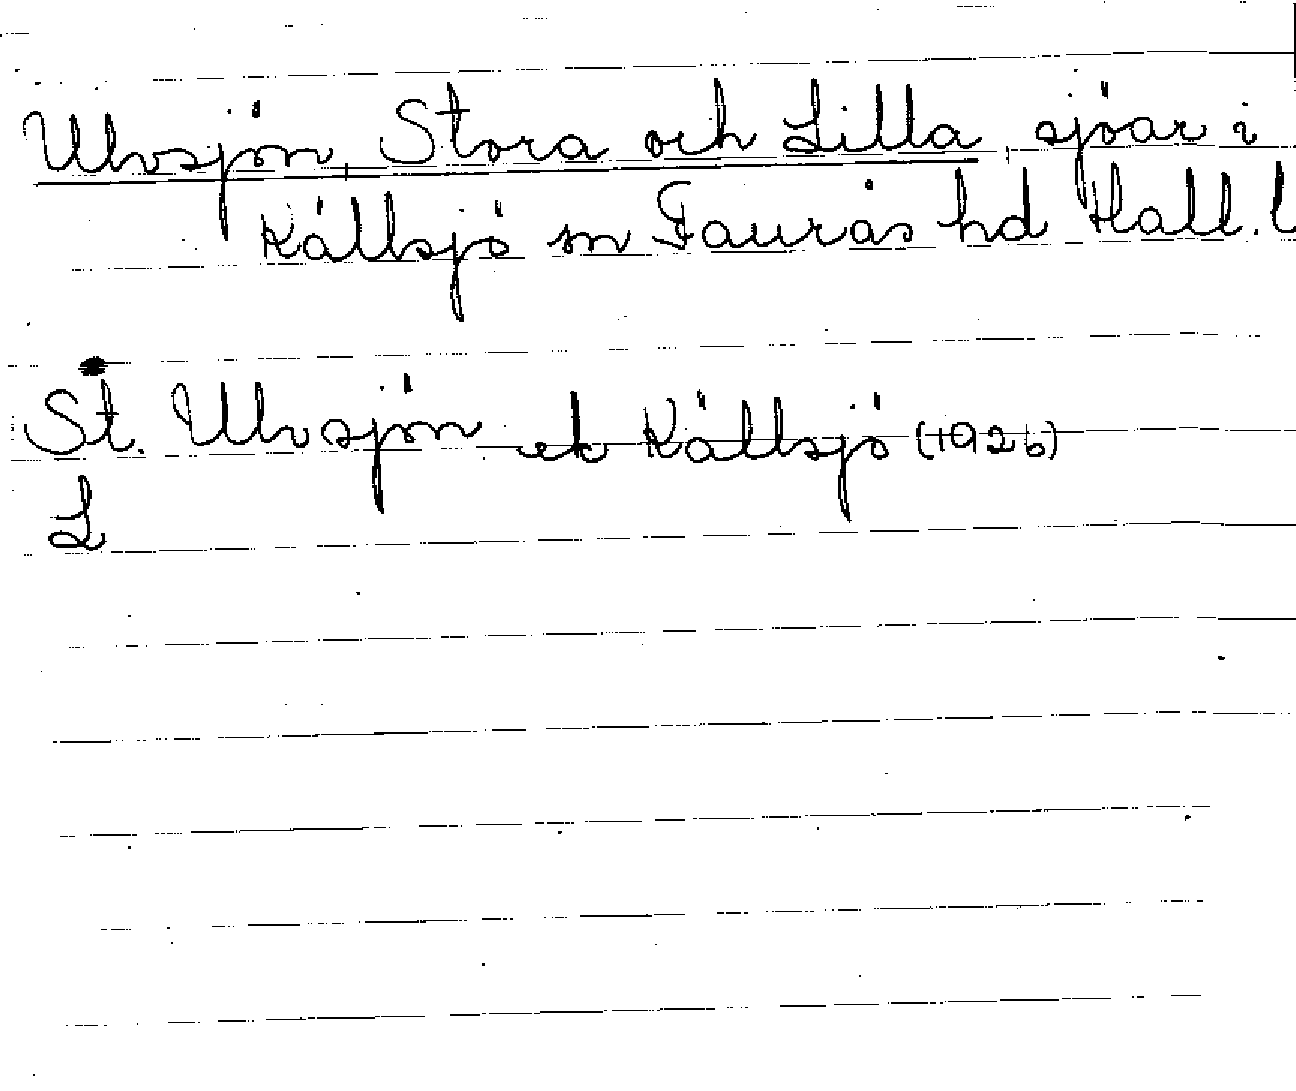 Ulvsjön, Stora och Lilla, sjöar i
Källsjö sn Faurås hd Hall. l
St. Ulvsjön ek Källsjö (1926)
L